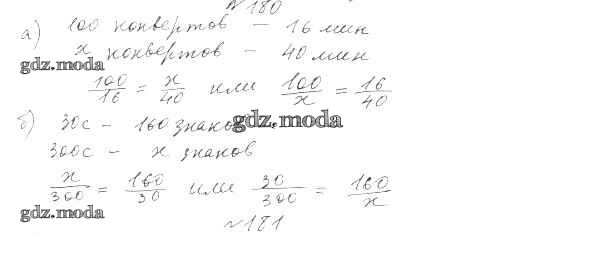 № 180
а) 100 конвертов – 16 мин
x конвертов – 40 мин
gdz.moda
100/16 = x/40 или 100/x = 16/40
б) 30с – 160 знаков
gdz.moda
360с – x знаков
x/360 = 160/30 или 30/360 = 160/x
gdz.moda
№ 181